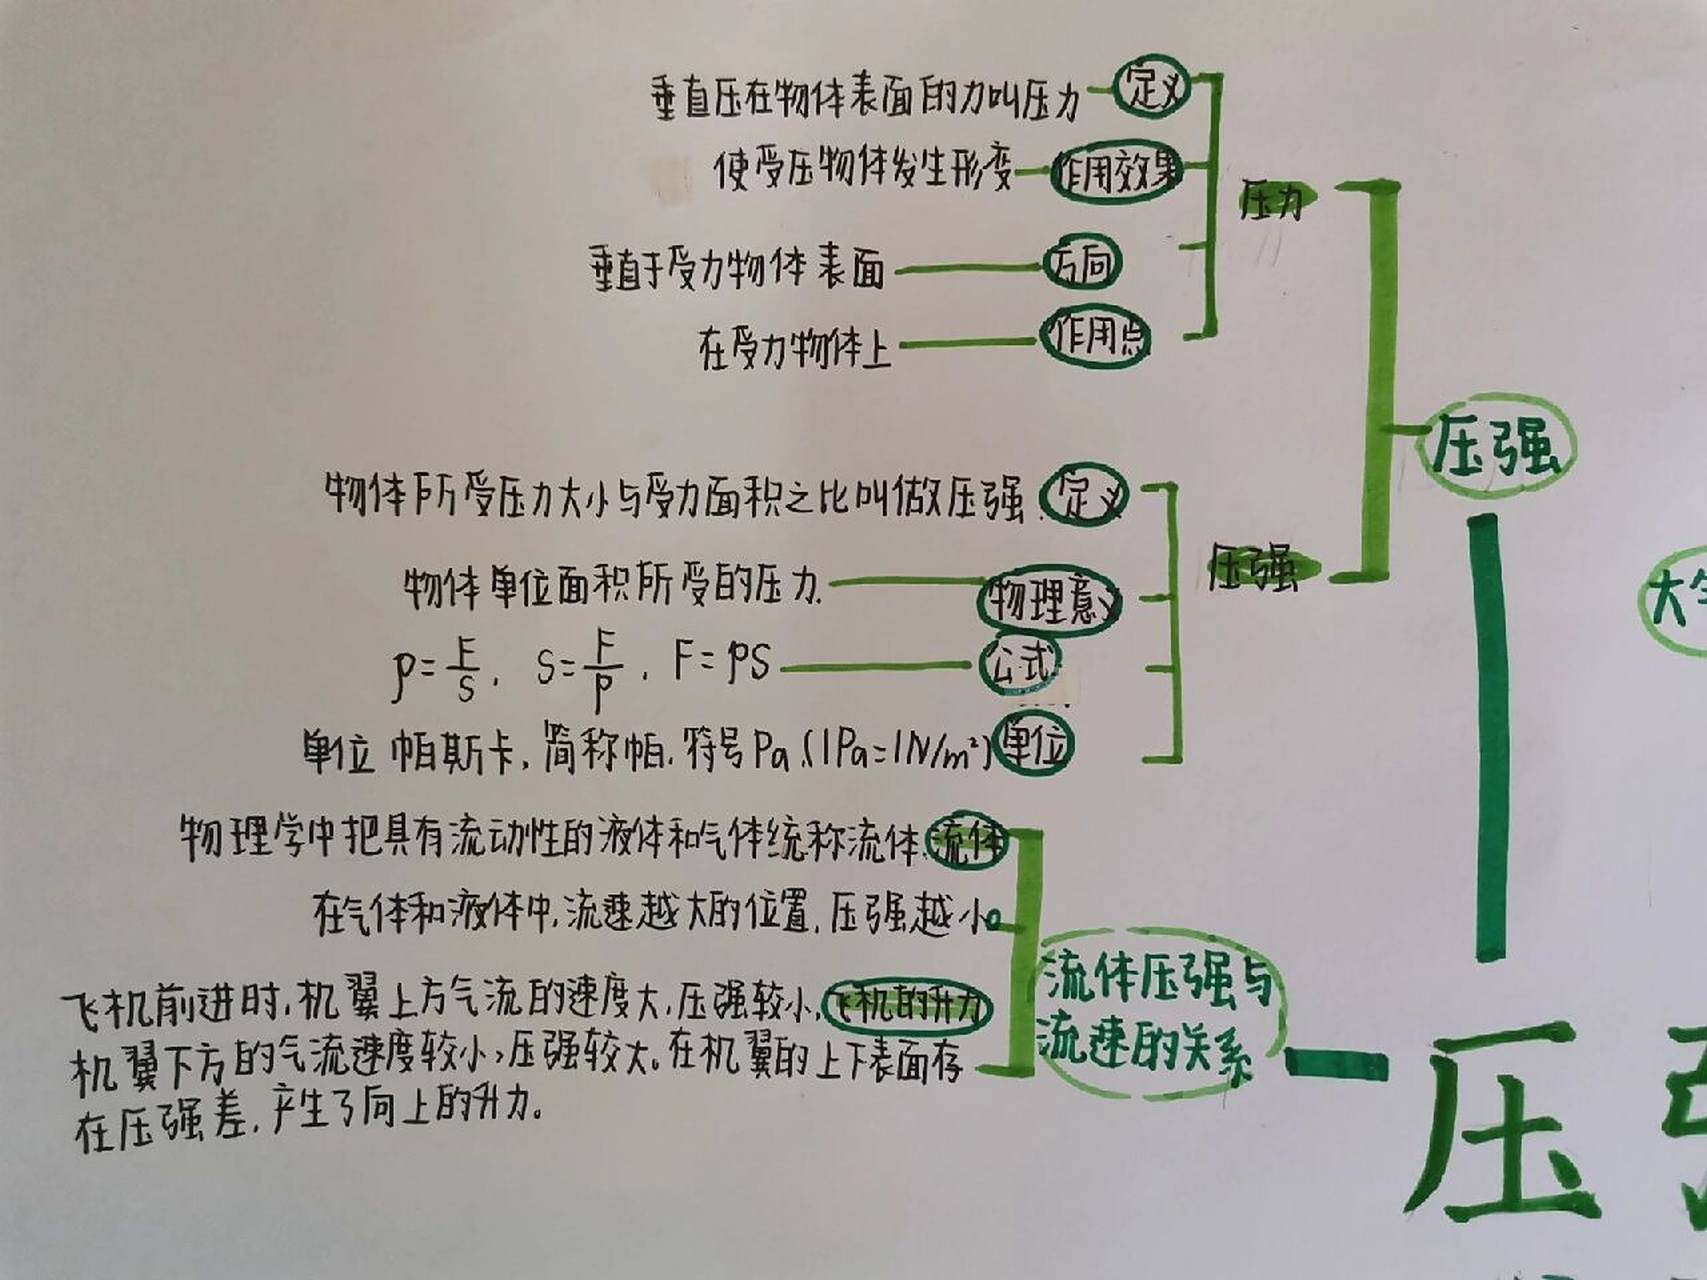 垂直压在物体表面的力叫压力 定义
使受压物体发生形变 作用效果
压力
垂直于受力物体表面 方向
在受力物体上 作用点
压强
物体所受压力大小与受力面积之比叫做压强. 定义
压强
物体单位面积所受的压力. 物理意义
p=F/S, S=F/p, F=pS 公式
单位 帕斯卡,简称帕.符号Pa.(1Pa=1N/m²) 单位
物理学中把具有流动性的液体和气体统称流体. 流体
在气体和液体中,流速越大的位置,压强越小。
流体压强与
流速的关系
飞机前进时,机翼上方气流的速度大,压强较小, 飞机的升力
机翼下方的气流速度较小,压强较大。在机翼的上下表面存
在压强差,产生了向上的升力。
压